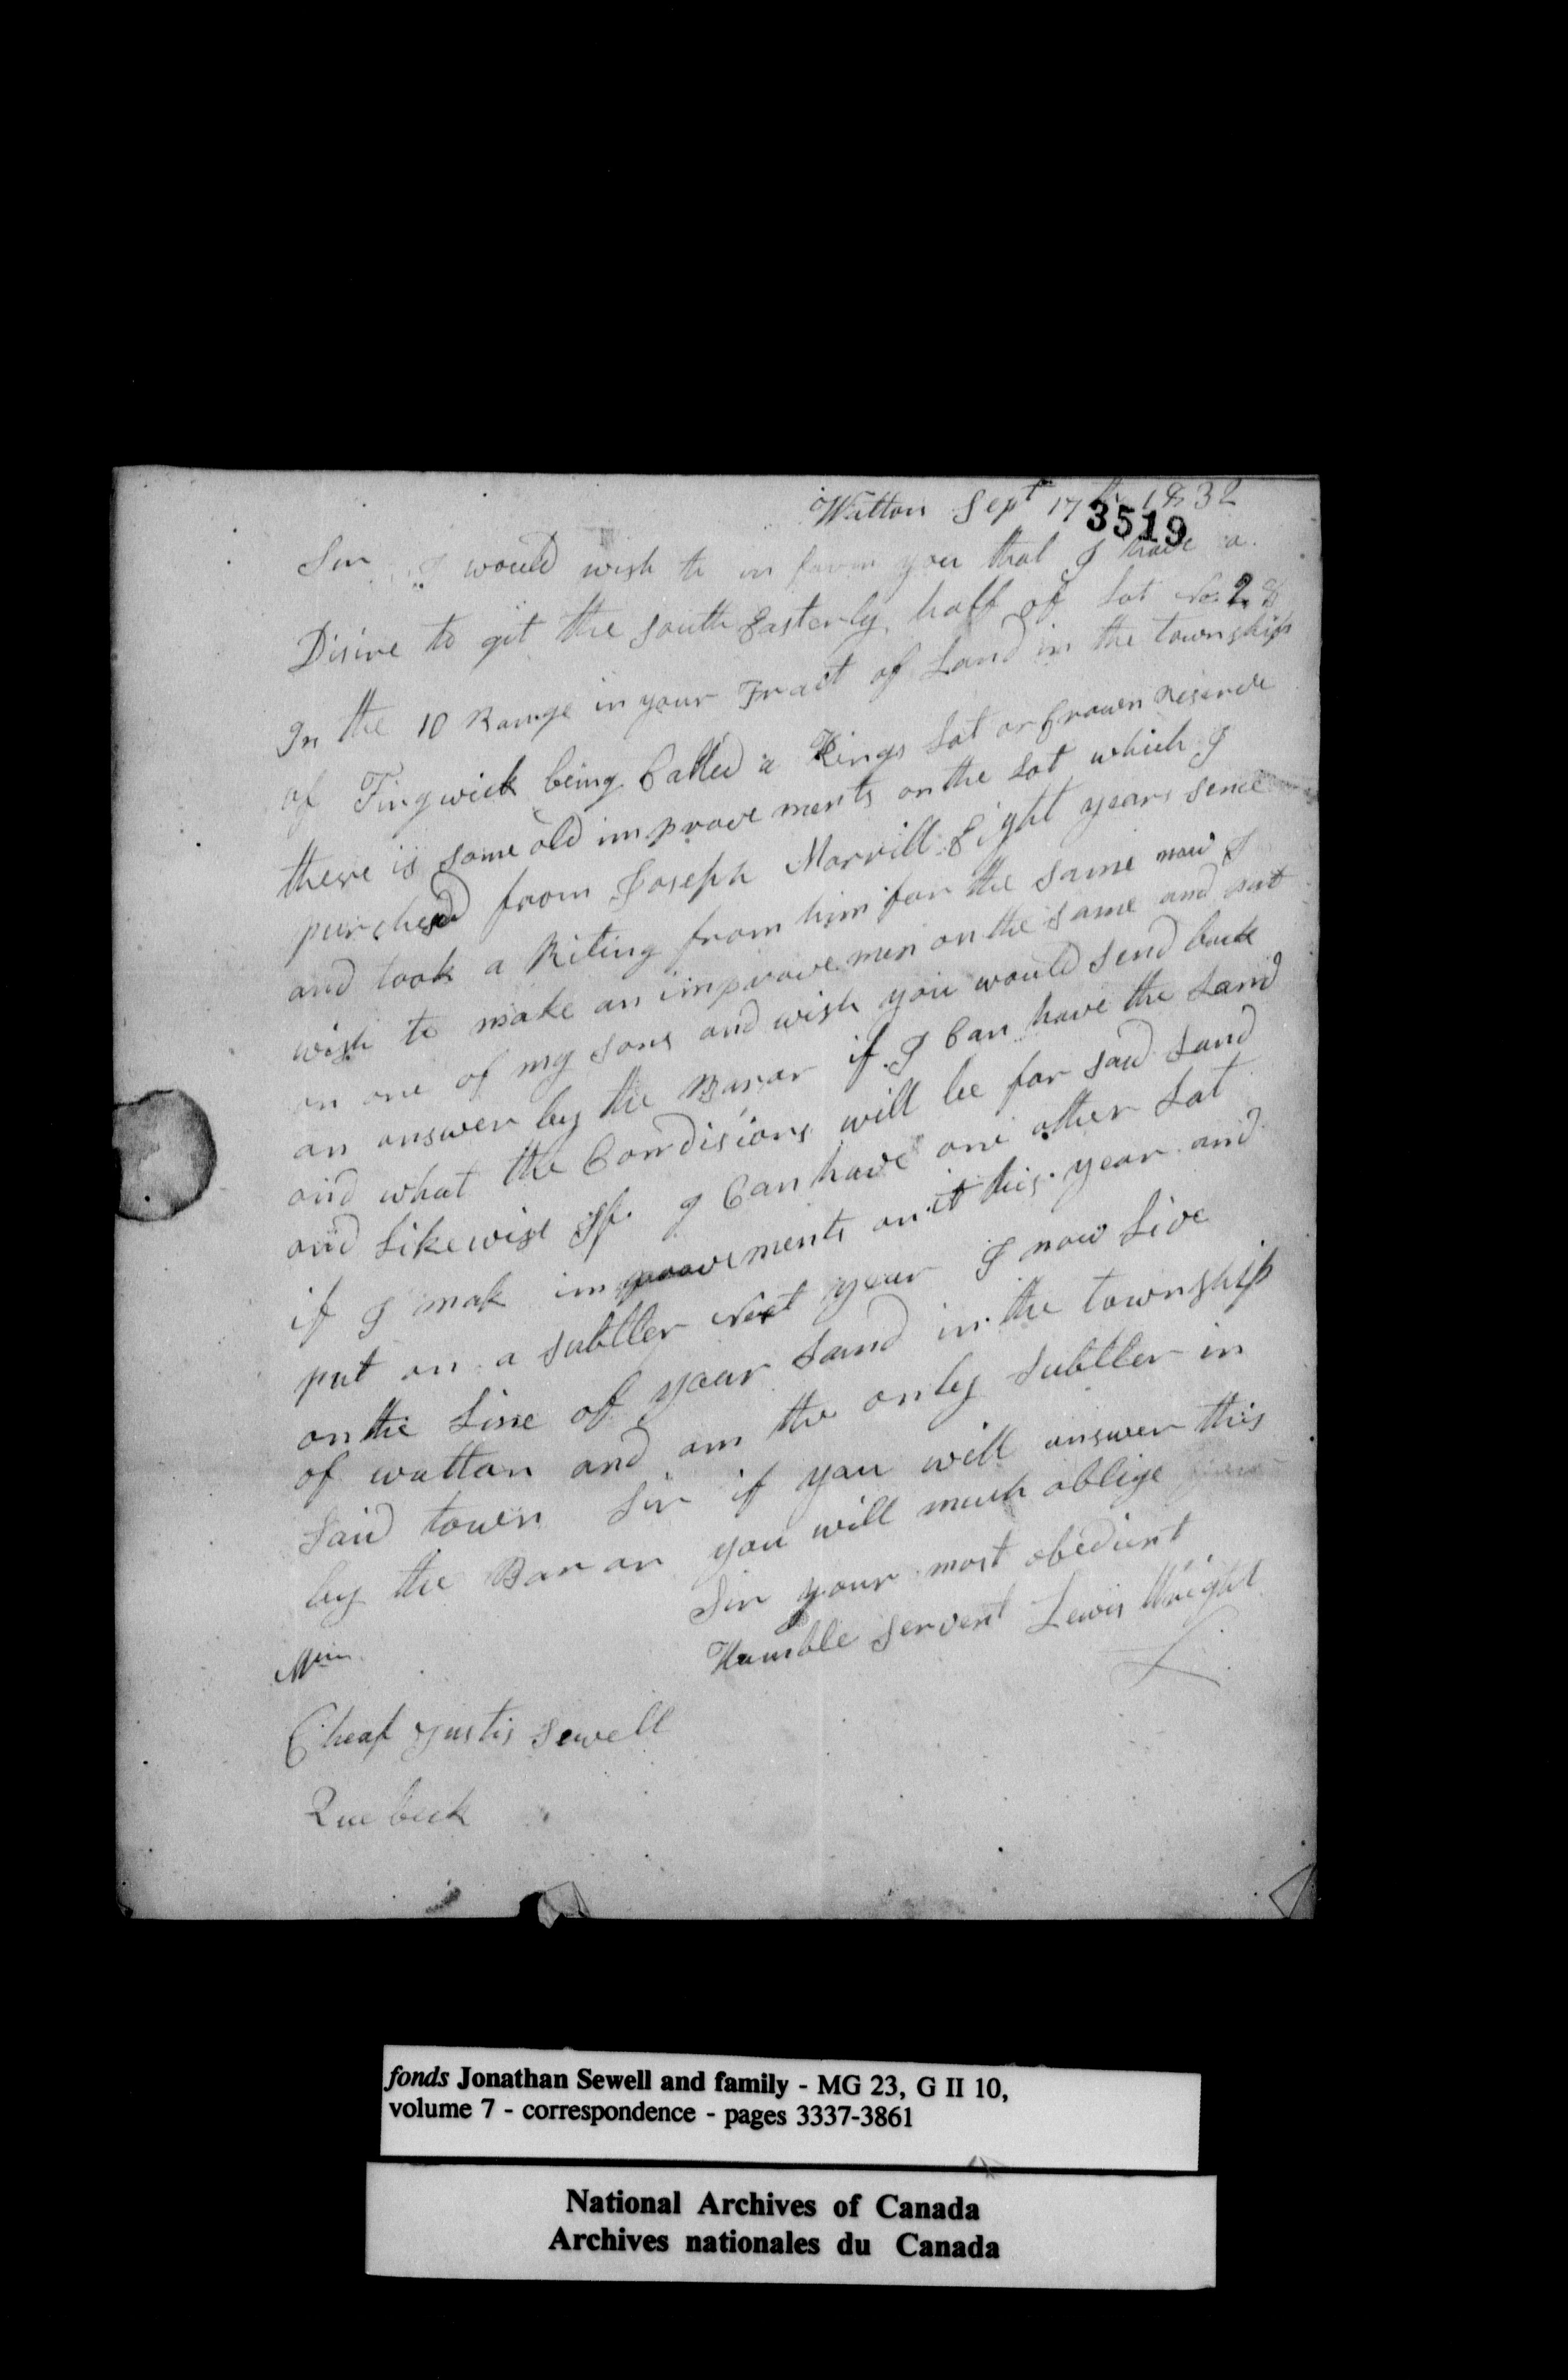 Wotton Sept 17th 1832
3519
Sir I would wish to in form you that I have a
Disire to git the South Easterly half of Lot No. 28
In the 10 Range in your Tract of Land in the township
of Tingwick being Called a Kings Lot or Crown Reserve
there is some old improvements on the Lot which I
purchesd from Joseph Morrill Eight years sence
and took a Riting from him for the same now I
wish to make an improvemen on the same and put
on one of my sons and wish you would send back
an answer by the Barar if I Can have the Land
and what the Condisions will be for said Land
and Likewise If I Can have one other Lot
if I mak improovements on it this year and
put on a subtler Next year I now Live
on the Line of your Land in the township
of watton and am the only subtler in
said town Sir if you will answer this
by the Baror you will much oblige
Sir your most obedient
Humble Servent Lewis Wright
Cheaf Justis Sewell
Quebeck
fonds Jonathan Sewell and family - MG 23, G II 10,
volume 7 - correspondence - pages 3337-3861
National Archives of Canada
Archives nationales du Canada